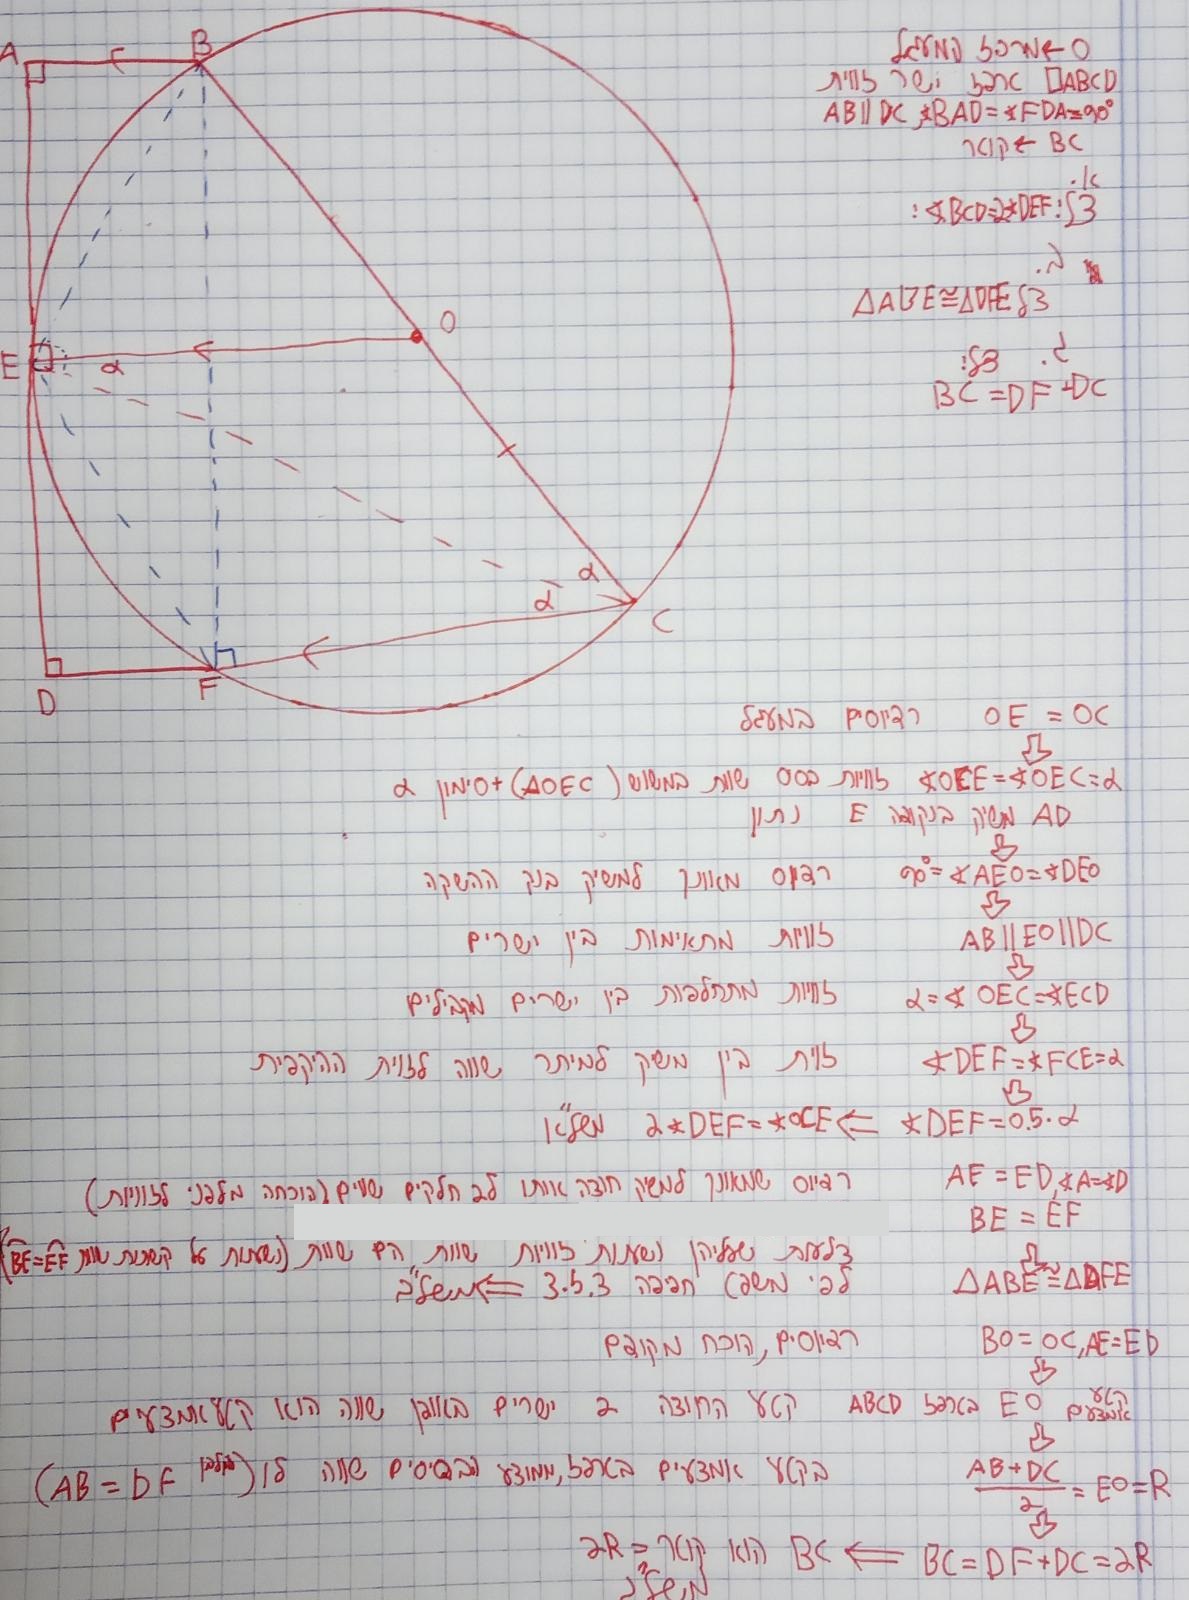 A
B
O
E
α
α
α
C
D
F
O ← מרכז המעגל
▭ABCD טרפז ישר זווית
AB∥DC ∢BAD=∢FDA=90°
BC ← קוטר
א.
צ"ל: ∢BCD=2∢DEF:
ב.
צ"ל ΔABE≅ΔDFE
ג. צ"ל:
BC=DF+DC
OE = OC רדיוסים במעגל
∢OCE=∢OEC=α זוויות בסס שוות במשולש (ΔOEC)+סימון α
AD משיק בנקודה E נתון
90°=∢AEO=∢DEO רדיוס מאונך למשיק בנק ההשקה
AB∥EO∥DC זוויות מתאימות בין ישרים
α=∢OEC=∢ECD זוויות מתחלפות בין ישרים מקבילים
∢DEF=∢FCE=α זוית בין משיק למיתר שווה לזוית ההיקפית
∢DEF=0.5·α ⇐ 2∢DEF=∢OCE מש"לא
AE=ED,∢A=∢D רדיוס שמאונך למשיק חוצה אותו לב חלקים שווים (הוכחה מלפני לזוויות)
BE = EF
צלעות שעליהן נשענות זוויות שוות, הם שוות (נשענות על קשתות שוות BE=EF)
ΔABE≅ΔDFE לפי משפט חפיפה צ.ז.צ ⇐ מש"לב
BO=OC,AE=ED רדיוסים, הוכח מקודם
קטע אמצעים EO בטרפז ABCD קטע החוצה 2 ישרים באופן שווה הוא קטע אמצעים
(AB+DC)/2=EO=R בקטע אמצעים בטרפז, ממוצע הבסיסים שווה לו (AB=DF)
BC=DF+DC=2R ⇐ BC הוא קוטר = 2R
מש"לג